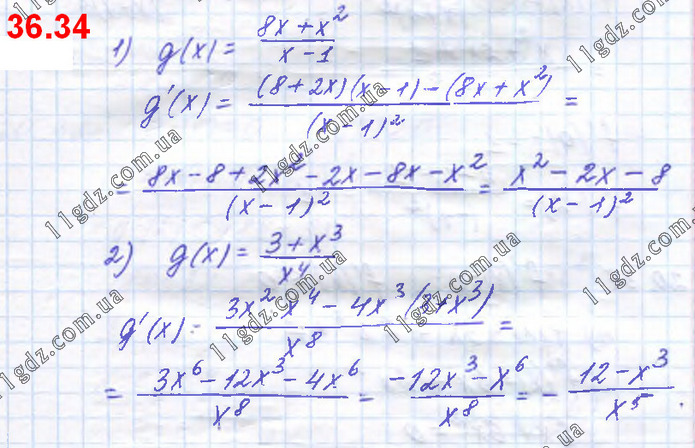 36.34
1) g(x) = (8x + x²)/(x - 1)
g'(x) = ((8 + 2x)(x - 1) - (8x + x²))/(x - 1)² =
= (8x - 8 + 2x² - 2x - 8x - x²)/(x - 1)² = (x² - 2x - 8)/(x - 1)²
2) g(x) = (3 + x³)/x⁴
g'(x) = (3x² x⁴ - 4x³(3 + x³))/x⁸ =
= (3x⁶ - 12x³ - 4x⁶)/x⁸ = (-12x³ - x⁶)/x⁸ = - (12 - x³)/x⁵.
11gdz.com.ua
11gdz.com.ua
11gdz.com.ua
11gdz.com.ua
11gdz.com.ua
11gdz.com.ua
11gdz.com.ua